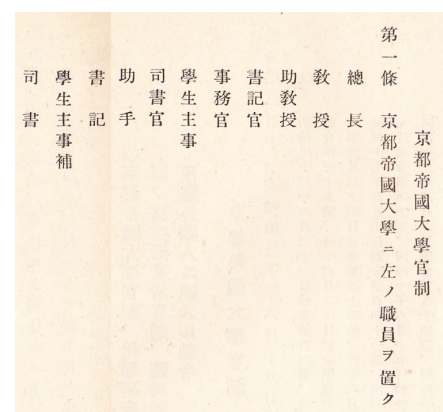 京都帝國大學官制
第一條 京都帝國大學ニ左ノ職員ヲ置ク
總長
敎授
助敎授
書記官
事務官
學生主事
司書官
助手
書記
學生主事補
司書